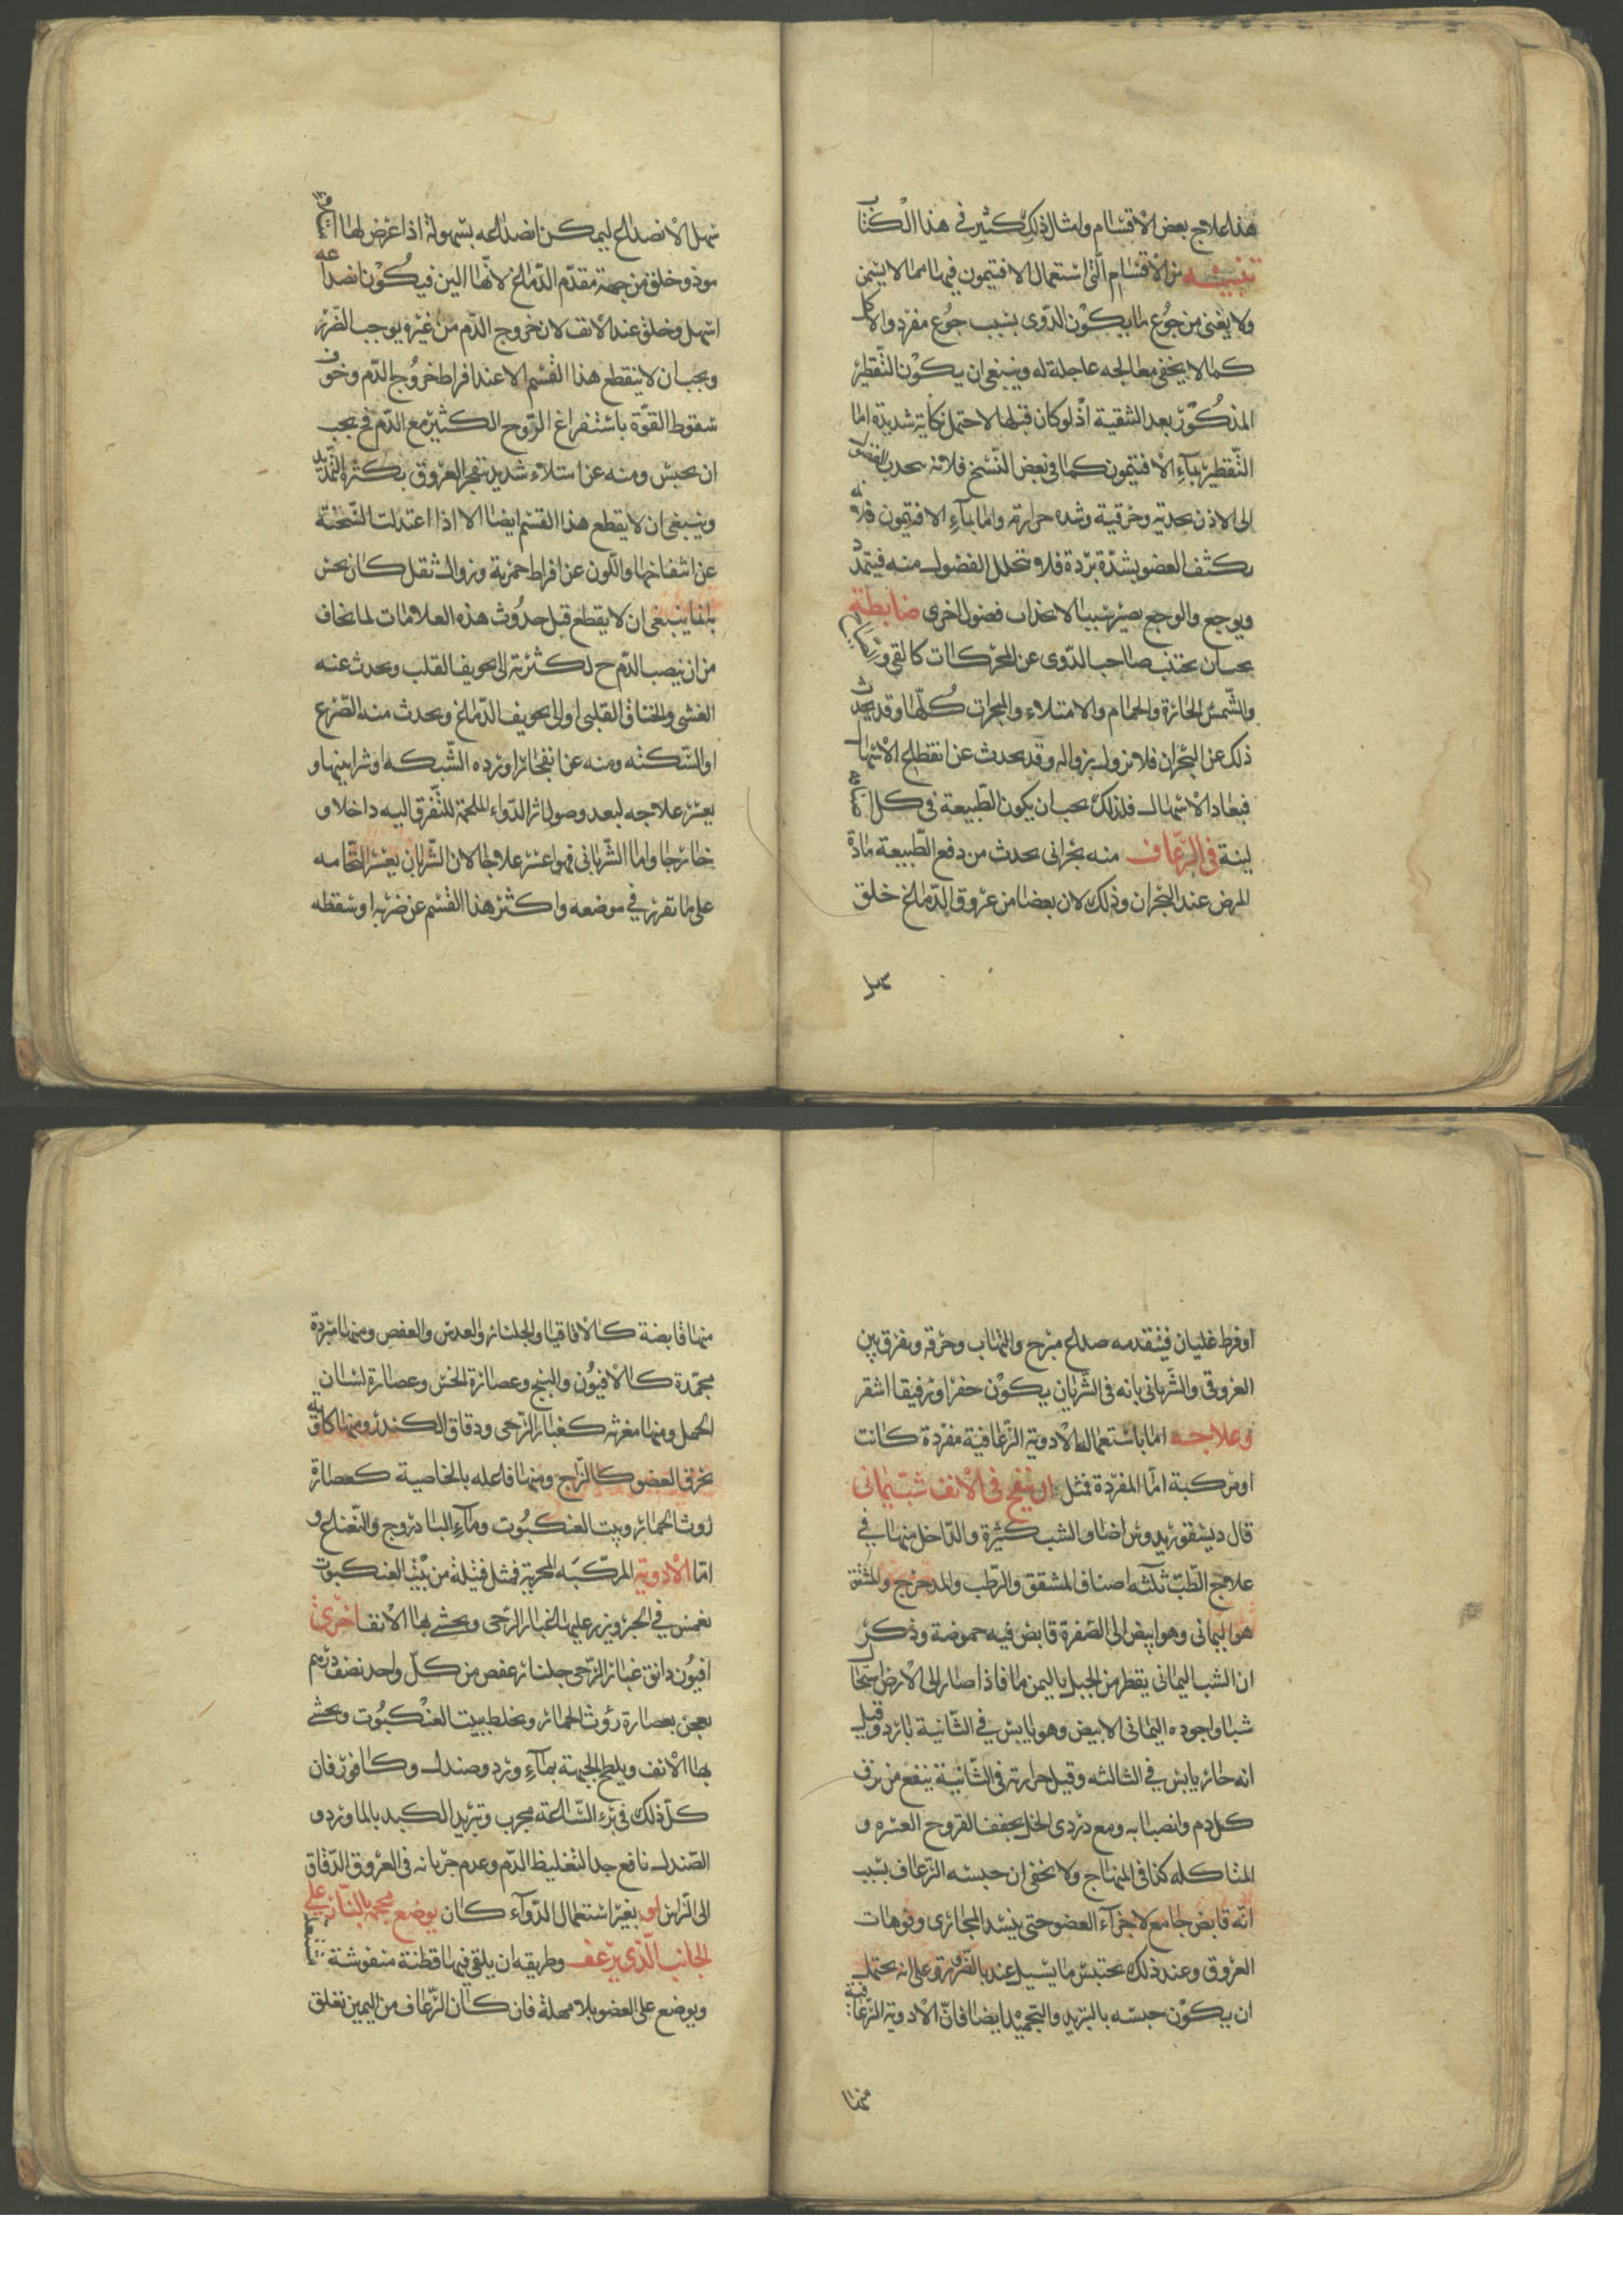 هذا علاج بعض الاقسام وامثال ذلك كثير في هذا الكتاب
تنبيه من الاقسام التى استعمال الافتيمون فيها مما لا يسمن
ولا يغنى من جوع ما يكون الدوى بسبب جوع مفرد والاكل
كما لا يخفى معالجه عاجلة له وينبغى ان يكون التقطير
المذكور بعد التنقية اذ لو كان قبلها لاحتمل نكاية شديدة اما
التقطير بماء الافتيمون كما في بعض النسخ فلانه يجذب الفضول
الى الاذن بحدته وحرقيته وشده حرارته واما بماء الافتيمون فلانه
يكثف العضو بشدة برده فلا يتحلل الفضول منه فيتمدد
ويوجع والوجع يصير سببا لانجذاب فضول اخرى ضابطة
يجب ان يجتنب صاحب الدوى عن المحركات كالقى و
والشمس الحارة والحمام والامتلاء والمبخرات كلها وقد يحدث
ذلك عن البحران فلا يزول بزواله وقد يحدث عن انقطاع الاسهال
فيعاد الاسهال فلذلك يجب ان يكون الطبيعة في كل
لينة في الرعاف منه بحرانى يحدث من دفع الطبيعة مادة
المرض عند البحران وذلك لان بعضا من عروق الدماغ خلق
سهل
سهل الانصداع ليمكن انصداعه بسهولة اذا عرض لها
موذ وخلق من جهة مقدم الدماغ لانها الين فيكون انصداعه
اسهل وخلق عند الانف لان خروج الدم من غيره يوجب الضرر
ويجب ان لا ينقطع هذا القسم الا عند افراط خروج الدم وخوف
سقوط القوة باستفراغ الروح الكثير مع الدم فح يجب
ان يحبس ومنه عن امتلاء شديد تنفجر العروق بكثرة التمديد
وينبغى ان لا يقطع هذا القسم ايضا الا اذا اعتدلت السحنة
عن انتفاخها واللون عن افراط حمرته وزوال ثقل كان يحس
بها فانما ينبغى ان لا يقطع قبل حدوث هذه العلامات لما يخاف
من ان ينصب الدم ح لكثرته الى تجويف القلب ويحدث عنه
الغشى والخناق القلبى او الى تجويف الدماغ ويحدث منه الصرع
او السكته ومنه عن انفجار اورده الشبكه او شرايينها و
يعسر علاجه لبعد وصول اثر الدواء الملحمة للتفرق اليه داخلا و
خارجا واما الشريانى فهو اعسر علاجا لان الشريان يعسر التحامه
على ما تقرر في موضعه واكثر هذا القسم عن ضربه او سقطه
او فرط غليان فيتقدمه صداع مبرح والتهاب وحرقه ويفرق بين
العروقى والشريانى بانه في الشريان يكون حفزا ورقيقا اشقر
وعلاجه اما باستعمال الادوية الرعافية مفردة كانت
او مركبة اما المفردة فمثل ان ينفخ في الانف شب يمانى
قال ديسقوريدوس اصناف الشب كثيرة والداخل منها في
علاج الطب ثلثه اصناف المشقق والرطب والمدحرج والمشقق
هو اليمانى وهو ابيض الى الصفرة قابض فيه حموضة وذكر
ان الشب اليمانى يقطر من الجبل باليمن ماء فاذا صار الى الارض استحال
شبا واجوده اليمانى الابيض وهو يابس في الثانية بارد وقيل
انه حار يابس في الثالثه وقيل حرارته في الثانية ينفع من نزف
كل دم وانصبابه ومع دردى الخل يجفف القروح العسره و
المتاكله كذا في المنهاج ولا يخفى ان حبسه الرعاف بسبب
انه قابض جامع لاجزاء العضو حتى ينسد المجارى وفوهات
العروق وعند ذلك يحتبس ما يسيل عنه بالضرورة وعلى انه يحتمل
ان يكون حبسه بالتبريد والتجميد ايضا فان الادوية الرعافية
منها
منها قابضة كالاقاقيا والجلنار والعدس والعفص ومنها مبردة
مجمدة كالافيون والبنج وعصارة الخس وعصارة لسان
الحمل ومنها مغرية كغبار الرحى ودقاق الكندر ومنها كاوية
تحرق العضو كالزاج ومنها فاعله بالخاصية كعصارة
روث الحمار وبيت العنكبوت وماء البادروج والنعناع و
اما الادوية المركبه المجربة فمثل فتيلة من بيت العنكبوت
تغمس في الحبر ويذر عليها غبار الرحى ويحشى بها الانف اخرى
افيون دانق غبار الرحى جلنار عفص من كل واحد نصف درهم
يعجن بعصارة روث الحمار ويخلط ببيت العنكبوت ويحشى
بها الانف ويلطخ الجبهة بماء ورد وصندل وكافور فان
كل ذلك في برء الساعة مجرب وتبريد الكبد بالماورد و
الصندل نافع جدا لتغليظ الدم وعدم جريانه في العروق الدقاق
الى الراس او بغير استعمال الدواء كان يوضع محجمه بالنار على
الجانب الذى يرعف وطريقه ان يلقى فيها قطنة منفوشة
ويوضع على العضو بلا مهلة فان كان الرعاف من اليمين تعلق